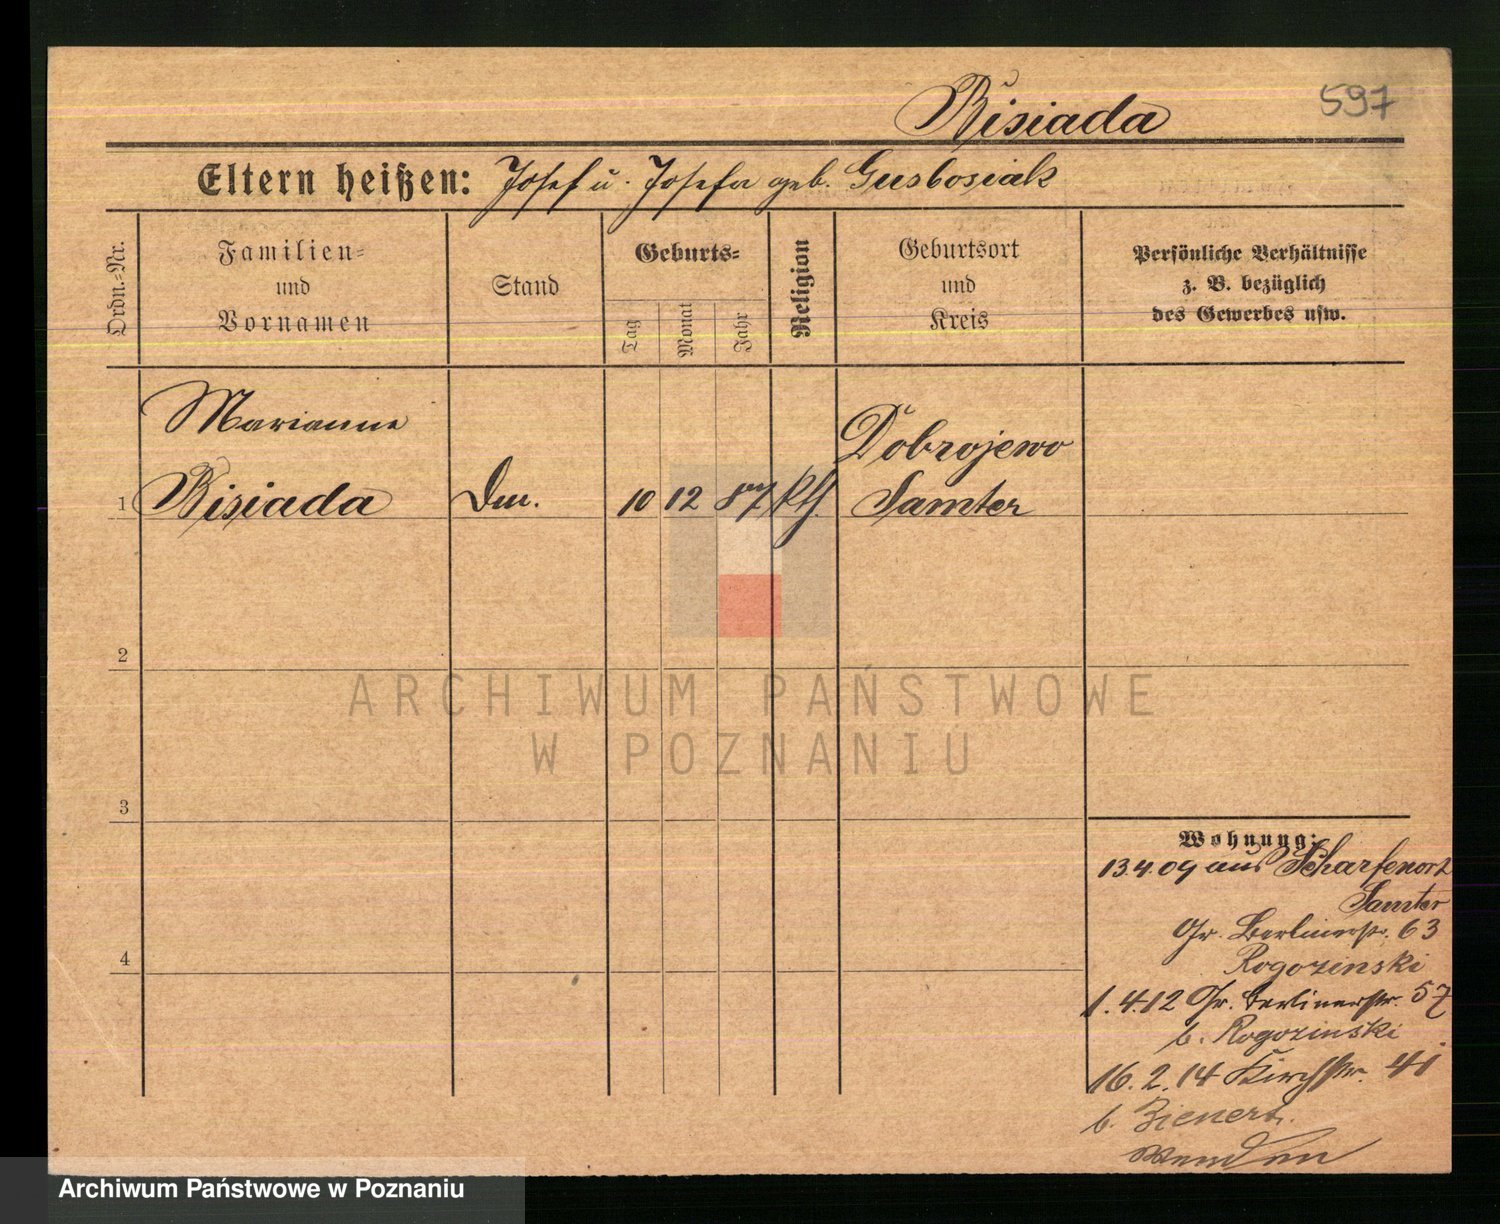 597
Risiada
Eltern heißen: Josef u. Josefa geb. Gusbosiak
Ordn.-Nr.
Familien-
und
Vornamen
Stand
Geburts-
Tag
Monat
Jahr
Religion
Geburtsort
und
Kreis
Persönliche Verhältnisse
z. B. bezüglich
des Gewerbes usw.
Marianne
Dobrojewo
1 Risiada 10 12 87 kth. Samter
2
3
4
Wohnung:
13.4.09 aus Scharfenort
Samter
Gr. Berlinerstr. 63
Rogozinski
1.4.12 Gr. Berlinerstr. 57
b. Rogozinski
16.2.14 Kirchstr. 41
b. Zienert.
ARCHIWUM PAŃSTWOWE
W POZNANIU
Archiwum Państwowe w Poznaniu